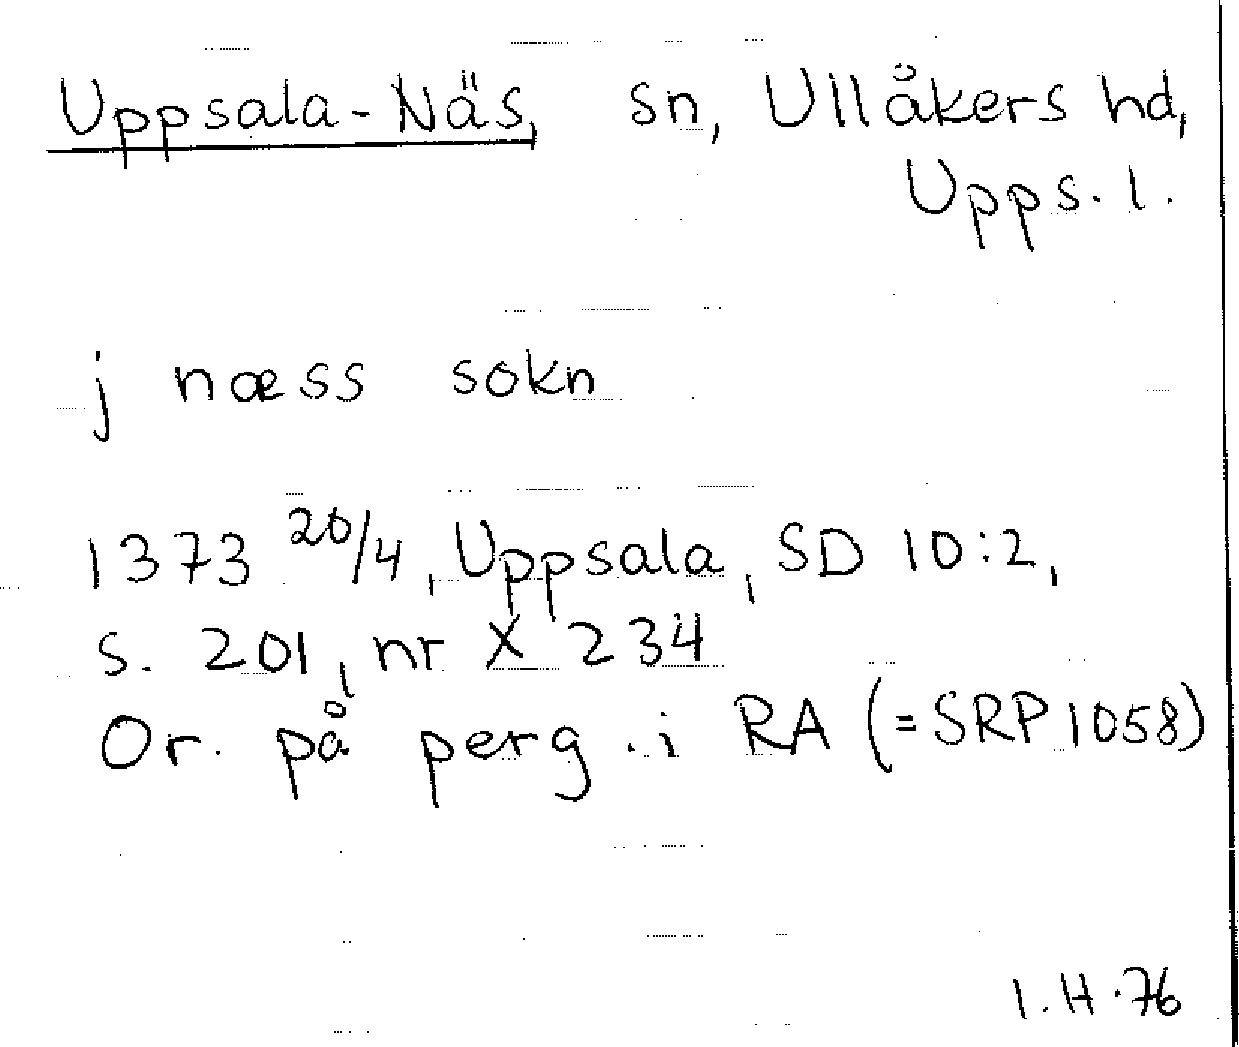 Uppsala-Näs, sn, Ullåkers hd,
Upps. l.
j næss sokn
1373 20/4, Uppsala, SD 10:2,
s. 201, nr X 234
Or. på perg. i RA (= SRP 1058)
I.H.76